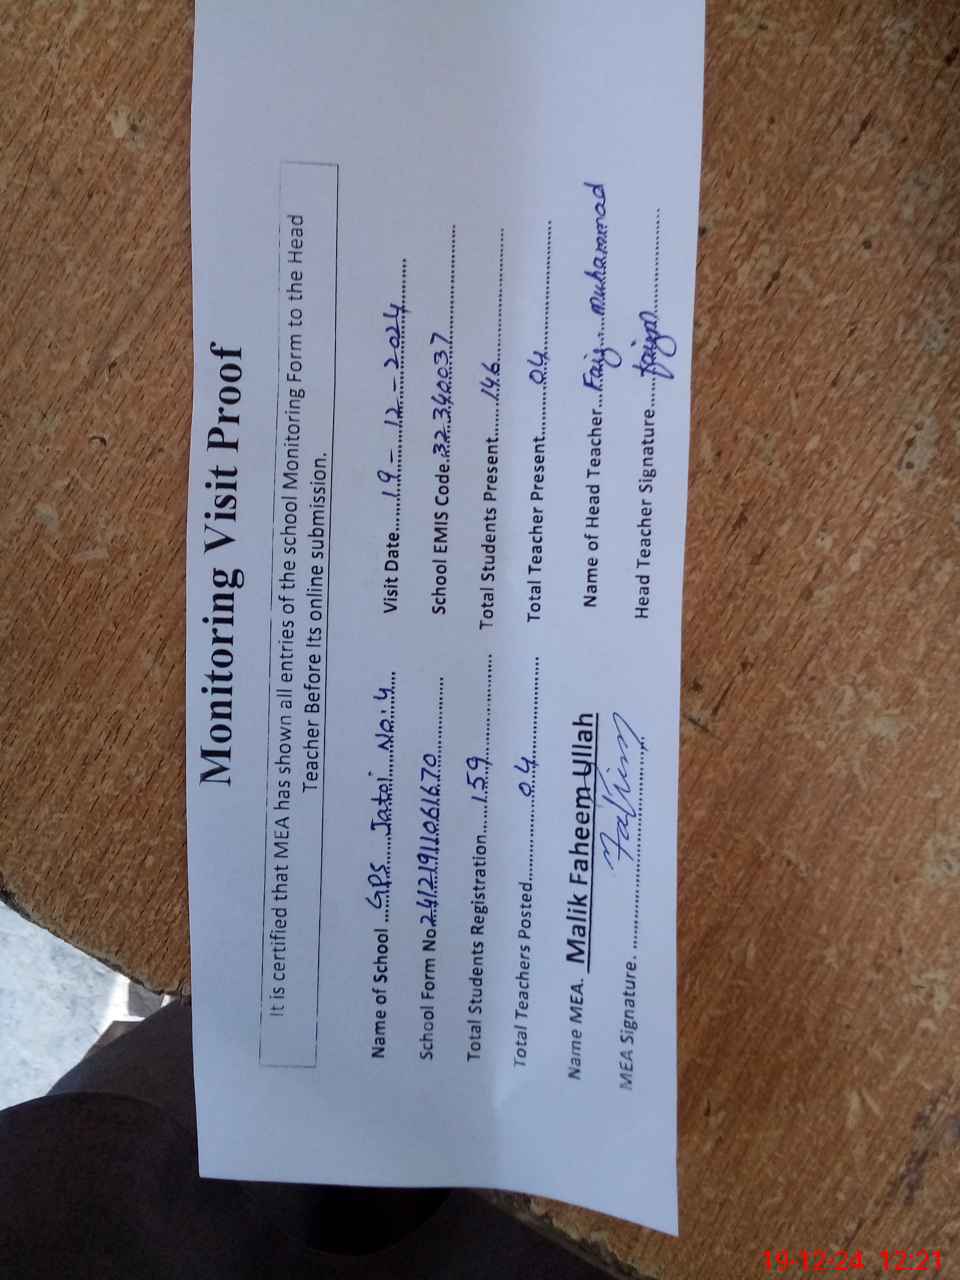 Monitoring Visit Proof
It is certified that MEA has shown all entries of the school Monitoring Form to the Head
Teacher Before Its online submission.
Name of School ....GPS Jatoi No: 4.... Visit Date....19-12-2024....
School Form No.24121911061670.... School EMIS Code.32340037....
Total Students Registration....159.... Total Students Present....146....
Total Teachers Posted....04.... Total Teacher Present....04....
Name MEA. Malik Faheem Ullah Name of Head Teacher...Faiz Muhammad
MEA Signature. .... Head Teacher Signature....
19-12-24 12:21